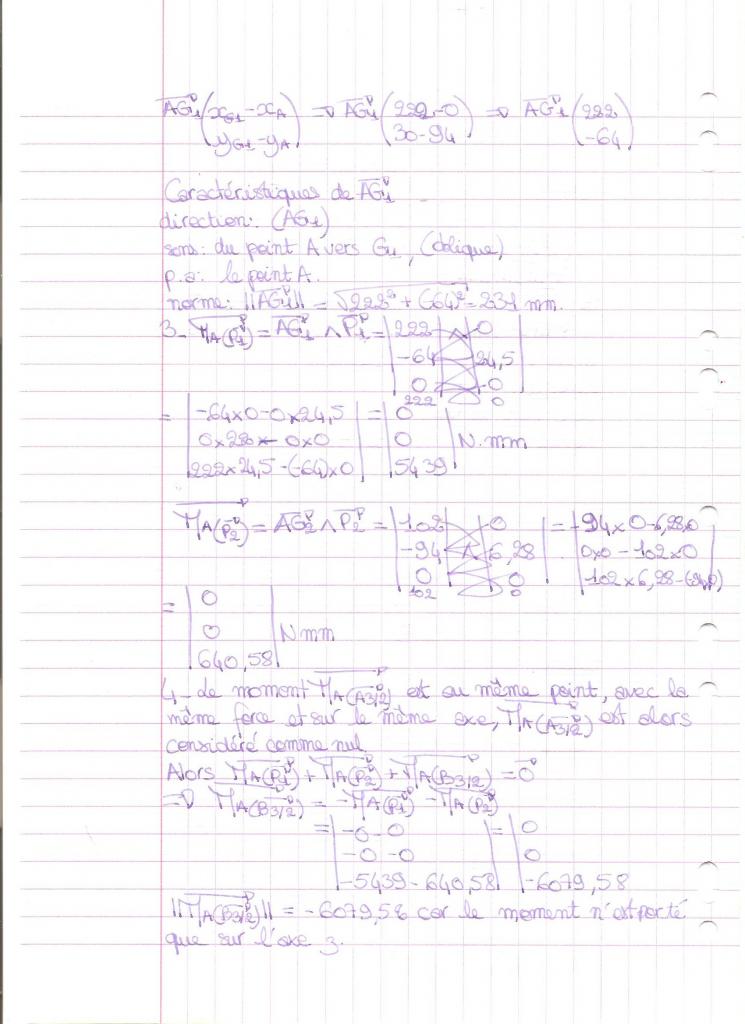 AG₁(xG1-xA) => AG₁(222-0) => AG₁(222)
(yG1-yA) (30-94) (-64)
Caractéristiques de AG₁
direction: (AG1)
sens: du point A vers G1, (oblique)
p.a: le point A.
norme: ||AG₁|| = √222²+(-64)² = 231 mm.
3- MA(P1) = AG1 ∧ P1 = |222 ∧ 0
-64 24,5
0 0
222 0
= |-64x0-0x24,5 | = |0
0x222 - 0x0 0 N.mm
222x24,5-(-64)x0 5439
MA(P2) = AG2 ∧ P2 = |102 0 | = |-94x0-6,28x0
-94 ∧ 6,28 0x0-102x0
0 0 102x6,28-(-94x0)
102 0
= |0
0 N mm
640,58
4- de moment MA(A3/2) est au même point, avec la
même force et sur le même axe, MA(A3/2) est alors
considéré comme nul.
Alors MA(P1) + MA(P2) + MA(B3/2) = 0
=> MA(B3/2) = -MA(P1) - MA(P2)
= |-0-0 | = |0
-0-0 0
-5439-640,58 -6079,58
||MA(B3/2)|| = -6079,58 car le moment n'est porté
que sur l'axe z.